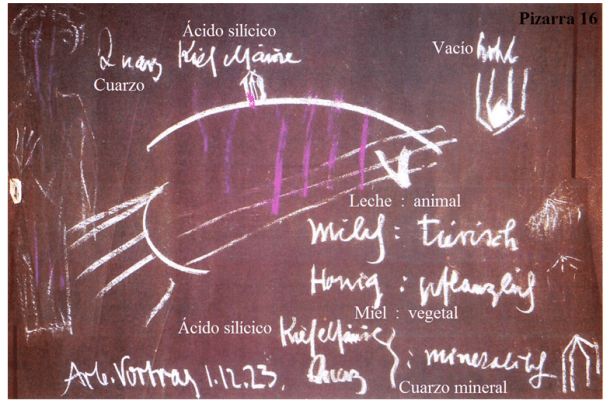 Pizarra 16
Ácido silícico
Vacío
Quarz Kieselsäure
hohl
Cuarzo
Leche : animal
Milch : tierisch
Honig : pflanzlich
Miel : vegetal
Ácido silícico
Kieselsäure
Quarz } : mineralisch
Cuarzo mineral
Arb. Vortrag 1.12.23.